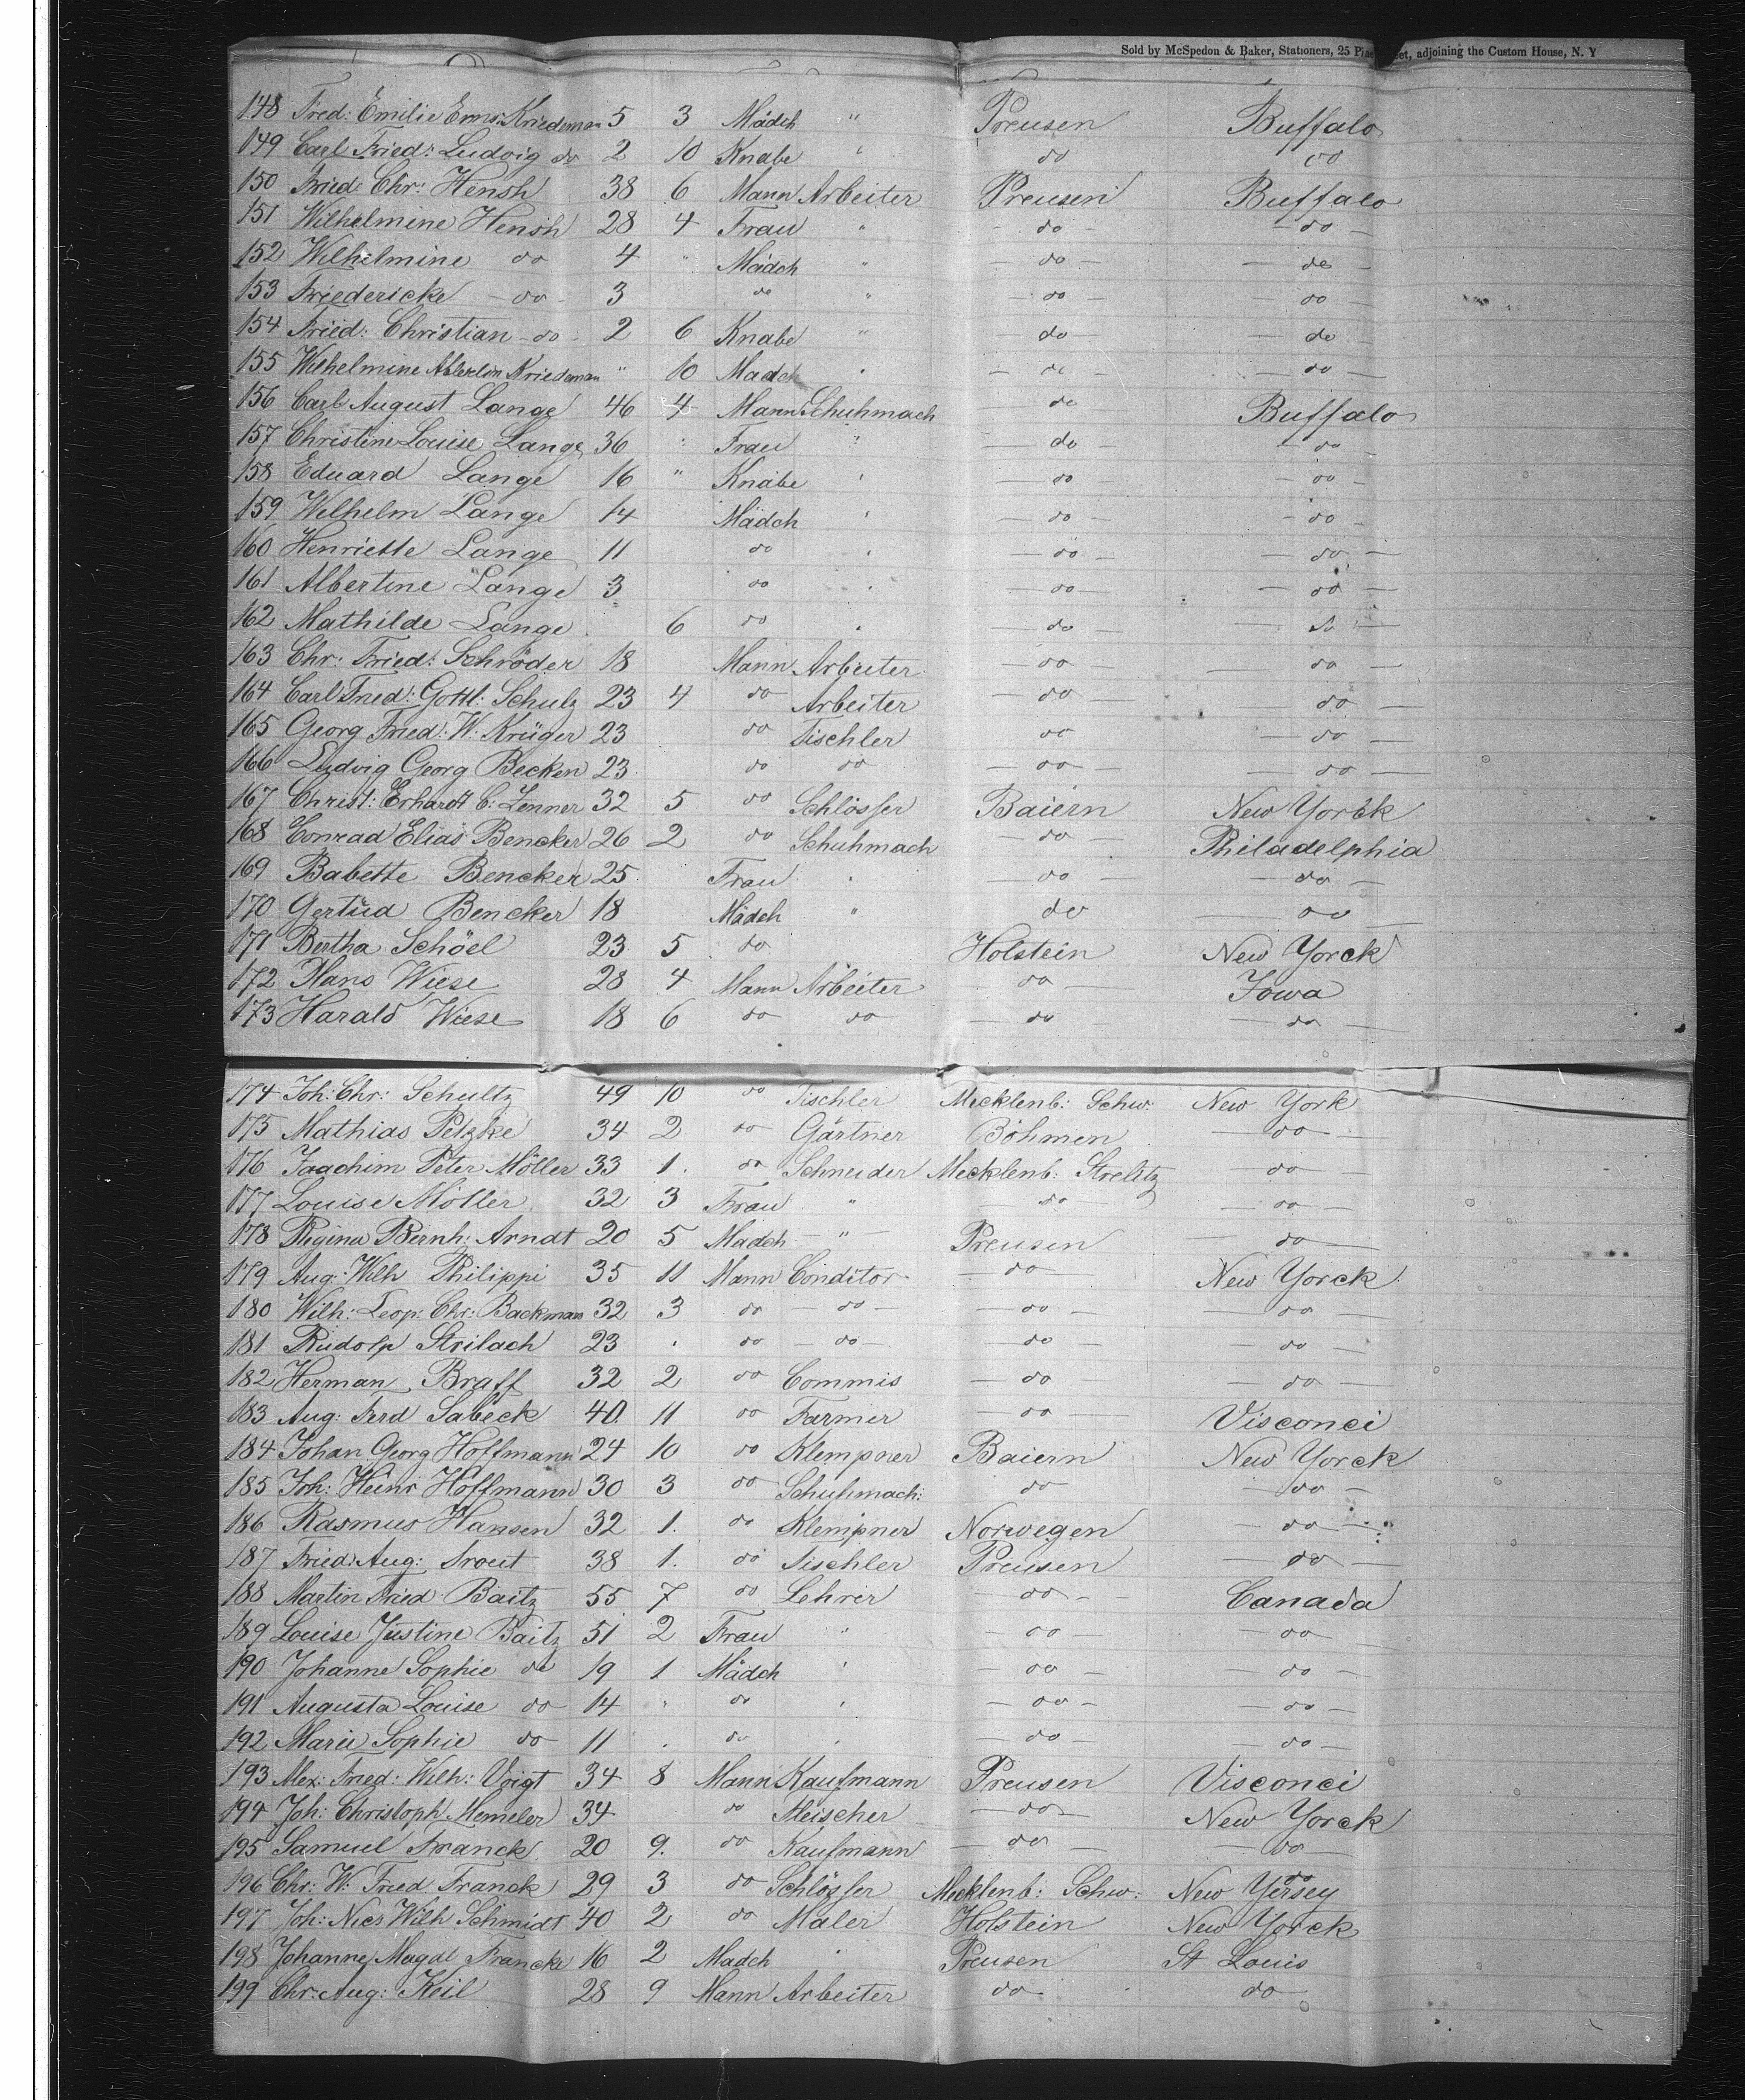 Sold by McSpedon & Baker, Stationers, 25 Pine Street, adjoining the Custom House, N. Y
148 Fred: Emilie Erns: Kriedeman 5 3 Mädch " Preusen Buffalo
149 Carl Fried: Ludvig do 2 10 Knabe " do do
150 Fried: Chr: Hensh 38 6 Mann Arbeiter Preusen Buffalo
151 Wilhelmine Hensh 28 4 Frau " do do
152 Wilhelmine do 4 " Mädch " do do
153 Friedericke do 3 do " do do
154 Fried: Christian do 2 6 Knabe " do do
155 Wilhelmine Kriedeman " 10 Madch " do do
156 Carl August Lange 46 4 Mann Schuhmach do Buffalo
157 Christine Louise Lange 36 " Frau " do do
158 Eduard Lange 16 " Knabe " do do
159 Wilhelm Lange 14 Mädch " do do
160 Henriette Lange 11 do " do do
161 Albertine Lange 3 do " do do
162 Mathilde Lange 6 do " do do
163 Chr: Fried: Schröder 18 Mann Arbeiter do do
164 Carl Fried: Gottl: Schulz 23 4 do Arbeiter do do
165 Georg Fried: W. Krüger 23 do Tischler do do
166 Ludvig Georg Becken 23 do do do do
167 Christ: Erhardt C: Zenner 32 5 do Schlösser Baiern New Yorck
168 Conrad Elias Bencker 26 2 do Schuhmach do Philadelphia
169 Babette Bencker 25 Frau " do do
170 Gertüd Bencker 18 Mädch " do do
171 Bertha Schöel 23 5 do Holstein New Yorck
172 Hans Wiese 28 4 Mann Arbeiter do Iowa
173 Harald Wiese 18 6 do do do do
174 Joh: Chr: Schultz 49 10 do Tischler Mecklenb: Schw: New York
175 Mathias Petzke 34 2 do Gärtner Böhmen do
176 Joachim Peter Möller 33 1. do Schneider Mecklenb: Strelitz do
177 Louise Möller 32 3 Frau " do do
178 Regina Bernh: Arndt 20 5 Madch " Preusen do
179 Aug: Wilh Philippi 35 11 Mann Conditor do New Yorck
180 Wilh: Leop: Chr: Backman 32 3 do do do do
181 Rudolp Strilach 23 " do do do do
182 Herman Braff 32 2 do Commis do do
183 Aug: Ferd Sabeck 40 11 do Farmer do Visconci
184 Johan Georg Hoffmann 24 10 do Klempner Baiern New Yorck
185 Joh: Heinr Hoffmann 30 3 do Schuhmach: do do
186 Rasmus Hansen 32 1. do Klempner Norwegen do
187 Fried: Aug: Trout 38 1. do Tischler Preusen do
188 Martin Fried Baitz 55 7 do Lehrer do Canada
189 Louise Justine Baitz 51 2 Frau " do do
190 Johanne Sophie do 19 1 Mädch " do do
191 Augusta Louise do 14 " do " do do
192 Marie Sophie do 11 " do " do do
193 Alex: Fried: Wilh: Voigt 34 8 Mann Kaufmann Preusen Visconci
194 Joh: Christoph Memeler 34 do Fleischer do New Yorck
195 Samuel Franck 20 9. do Kaufmann do do
196 Chr: W: Fried Franck 29 3 do Schlösser Mecklenb: Schw: New Yersey
197 Joh: Nics Wilh Schmidt 40 2 do Maler Holstein New Yorck
198 Johanne Magdl Francke 16 2 Madch " Preusen St Louis
199 Chr: Aug: Keil 28 9 Mann Arbeiter do do